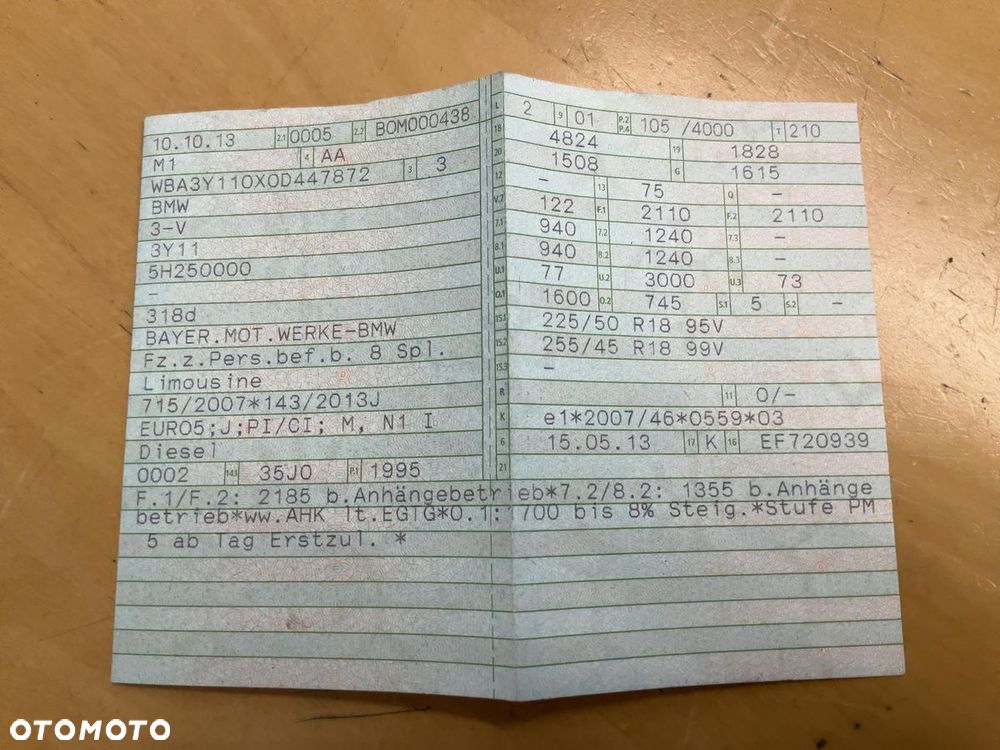 10.10.13 2.1 0005 2.2 BOM000438
M1 4 AA
WBA3Y110X0D447872 3 3
BMW
3-V
3Y11
5H250000
-
318d
BAYER.MOT.WERKE-BMW
Fz.z.Pers.bef.b. 8 Spl.
Limousine
715/2007*143/2013J
EURO5;J;PI/CI; M, N1 I
Diesel
0002 14.1 35J0 P.1 1995
L 2 9 01 P.2 P.4 105 /4000 T 210
18 4824 19 1828
20 1508 G 1615
12 - 13 75 Q -
V.7 122 F.1 2110 F.2 2110
7.1 940 7.2 1240 7.3 -
8.1 940 8.2 1240 8.3 -
U.1 77 U.2 3000 U.3 73
O.1 1600 O.2 745 S.1 5 S.2 -
15.1 225/50 R18 95V
15.2 255/45 R18 99V
15.3 -
R 11 0/-
K e1*2007/46*0559*03
6 15.05.13 17 K 16 EF720939
21
F.1/F.2: 2185 b.Anhängebetrieb*7.2/8.2: 1355 b.Anhänge
betrieb*ww.AHK lt.EGTG*O.1: 700 bis 8% Steig.*Stufe PM
5 ab Tag Erstzul. *
OTOMOTO